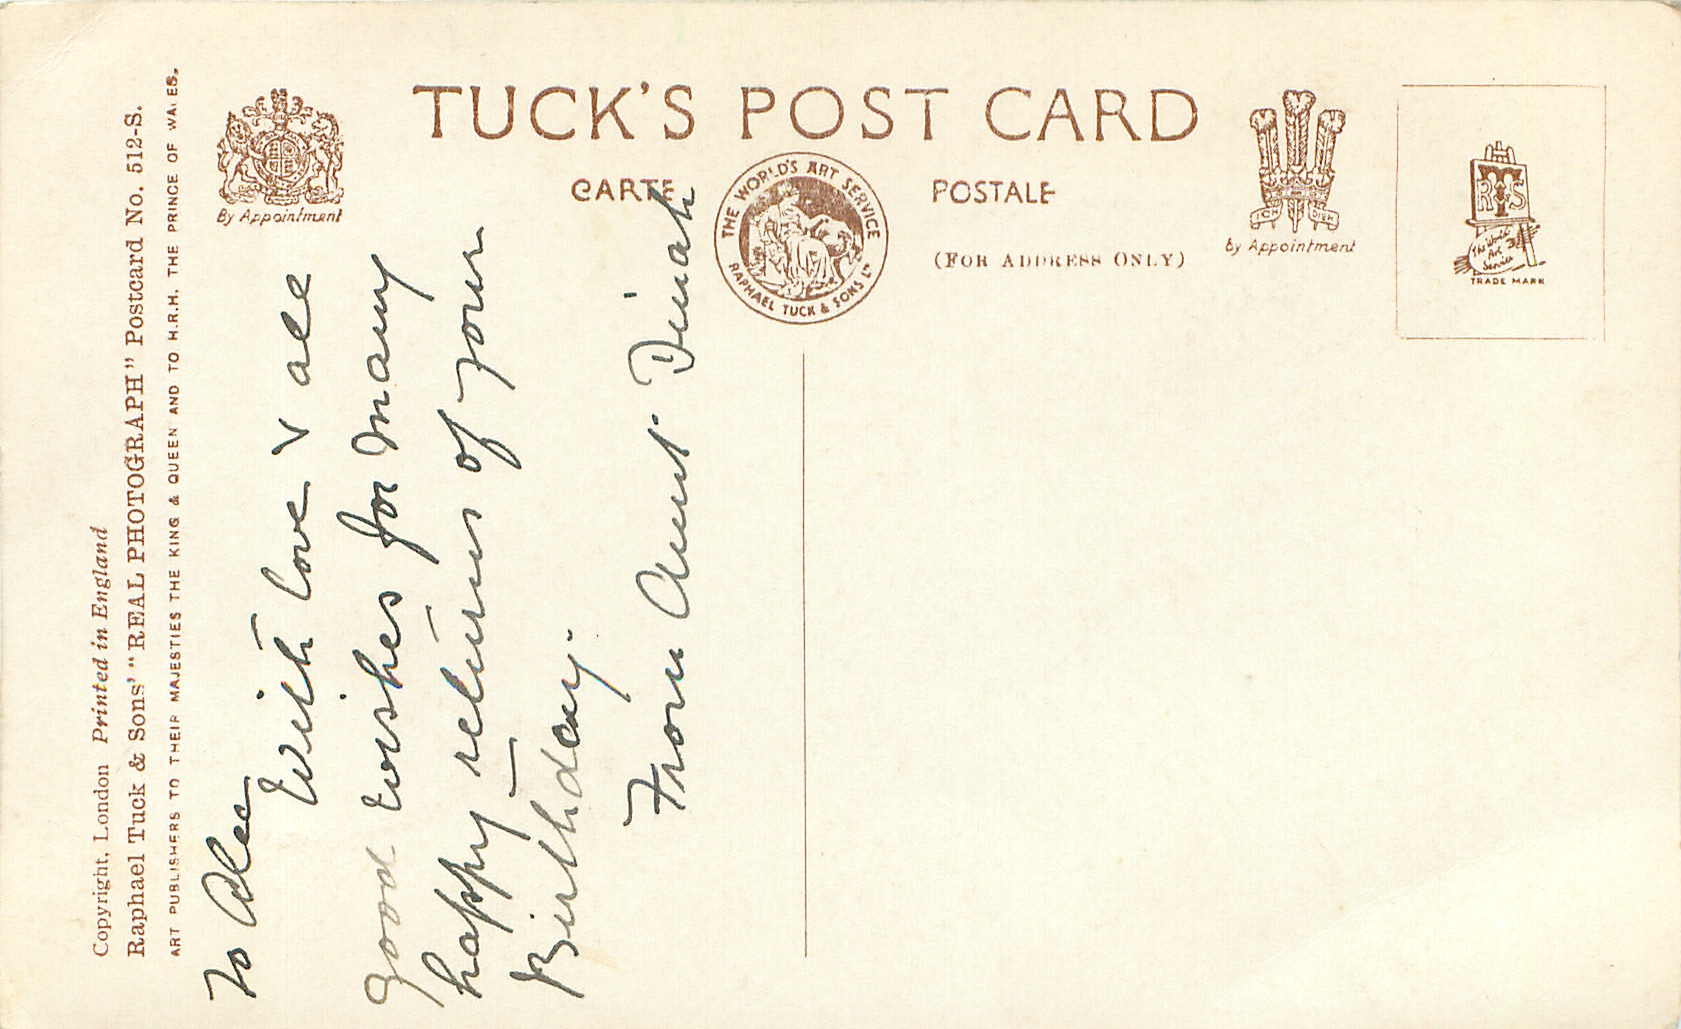 Copyright, London Printed in England
Raphael Tuck & Sons' "REAL PHOTOGRAPH" Postcard No. 512-S.
ART PUBLISHERS TO THEIR MAJESTIES THE KING & QUEEN AND TO H.R.H. THE PRINCE OF WALES.
By Appointment
TUCK'S POST CARD
CARTE POSTALE
(FOR ADDRESS ONLY)
THE WORLD'S ART SERVICE
RAPHAEL TUCK & SONS LTD
ICH DIEN
by Appointment
RTS
The World's
Art
Service
TRADE MARK
To Alec
With love & all
good wishes for many
happy returns of your
Birthday.
From Aunt Dinah